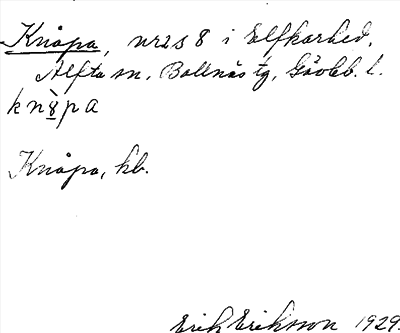 Knåpa, nr 2 s 8 i Elfkarhed,
Alfta sn, Bollnäs tg, Gävleb. l.
knɣ̀pa
Knåpa, kb.
Erik Eriksson 1929.